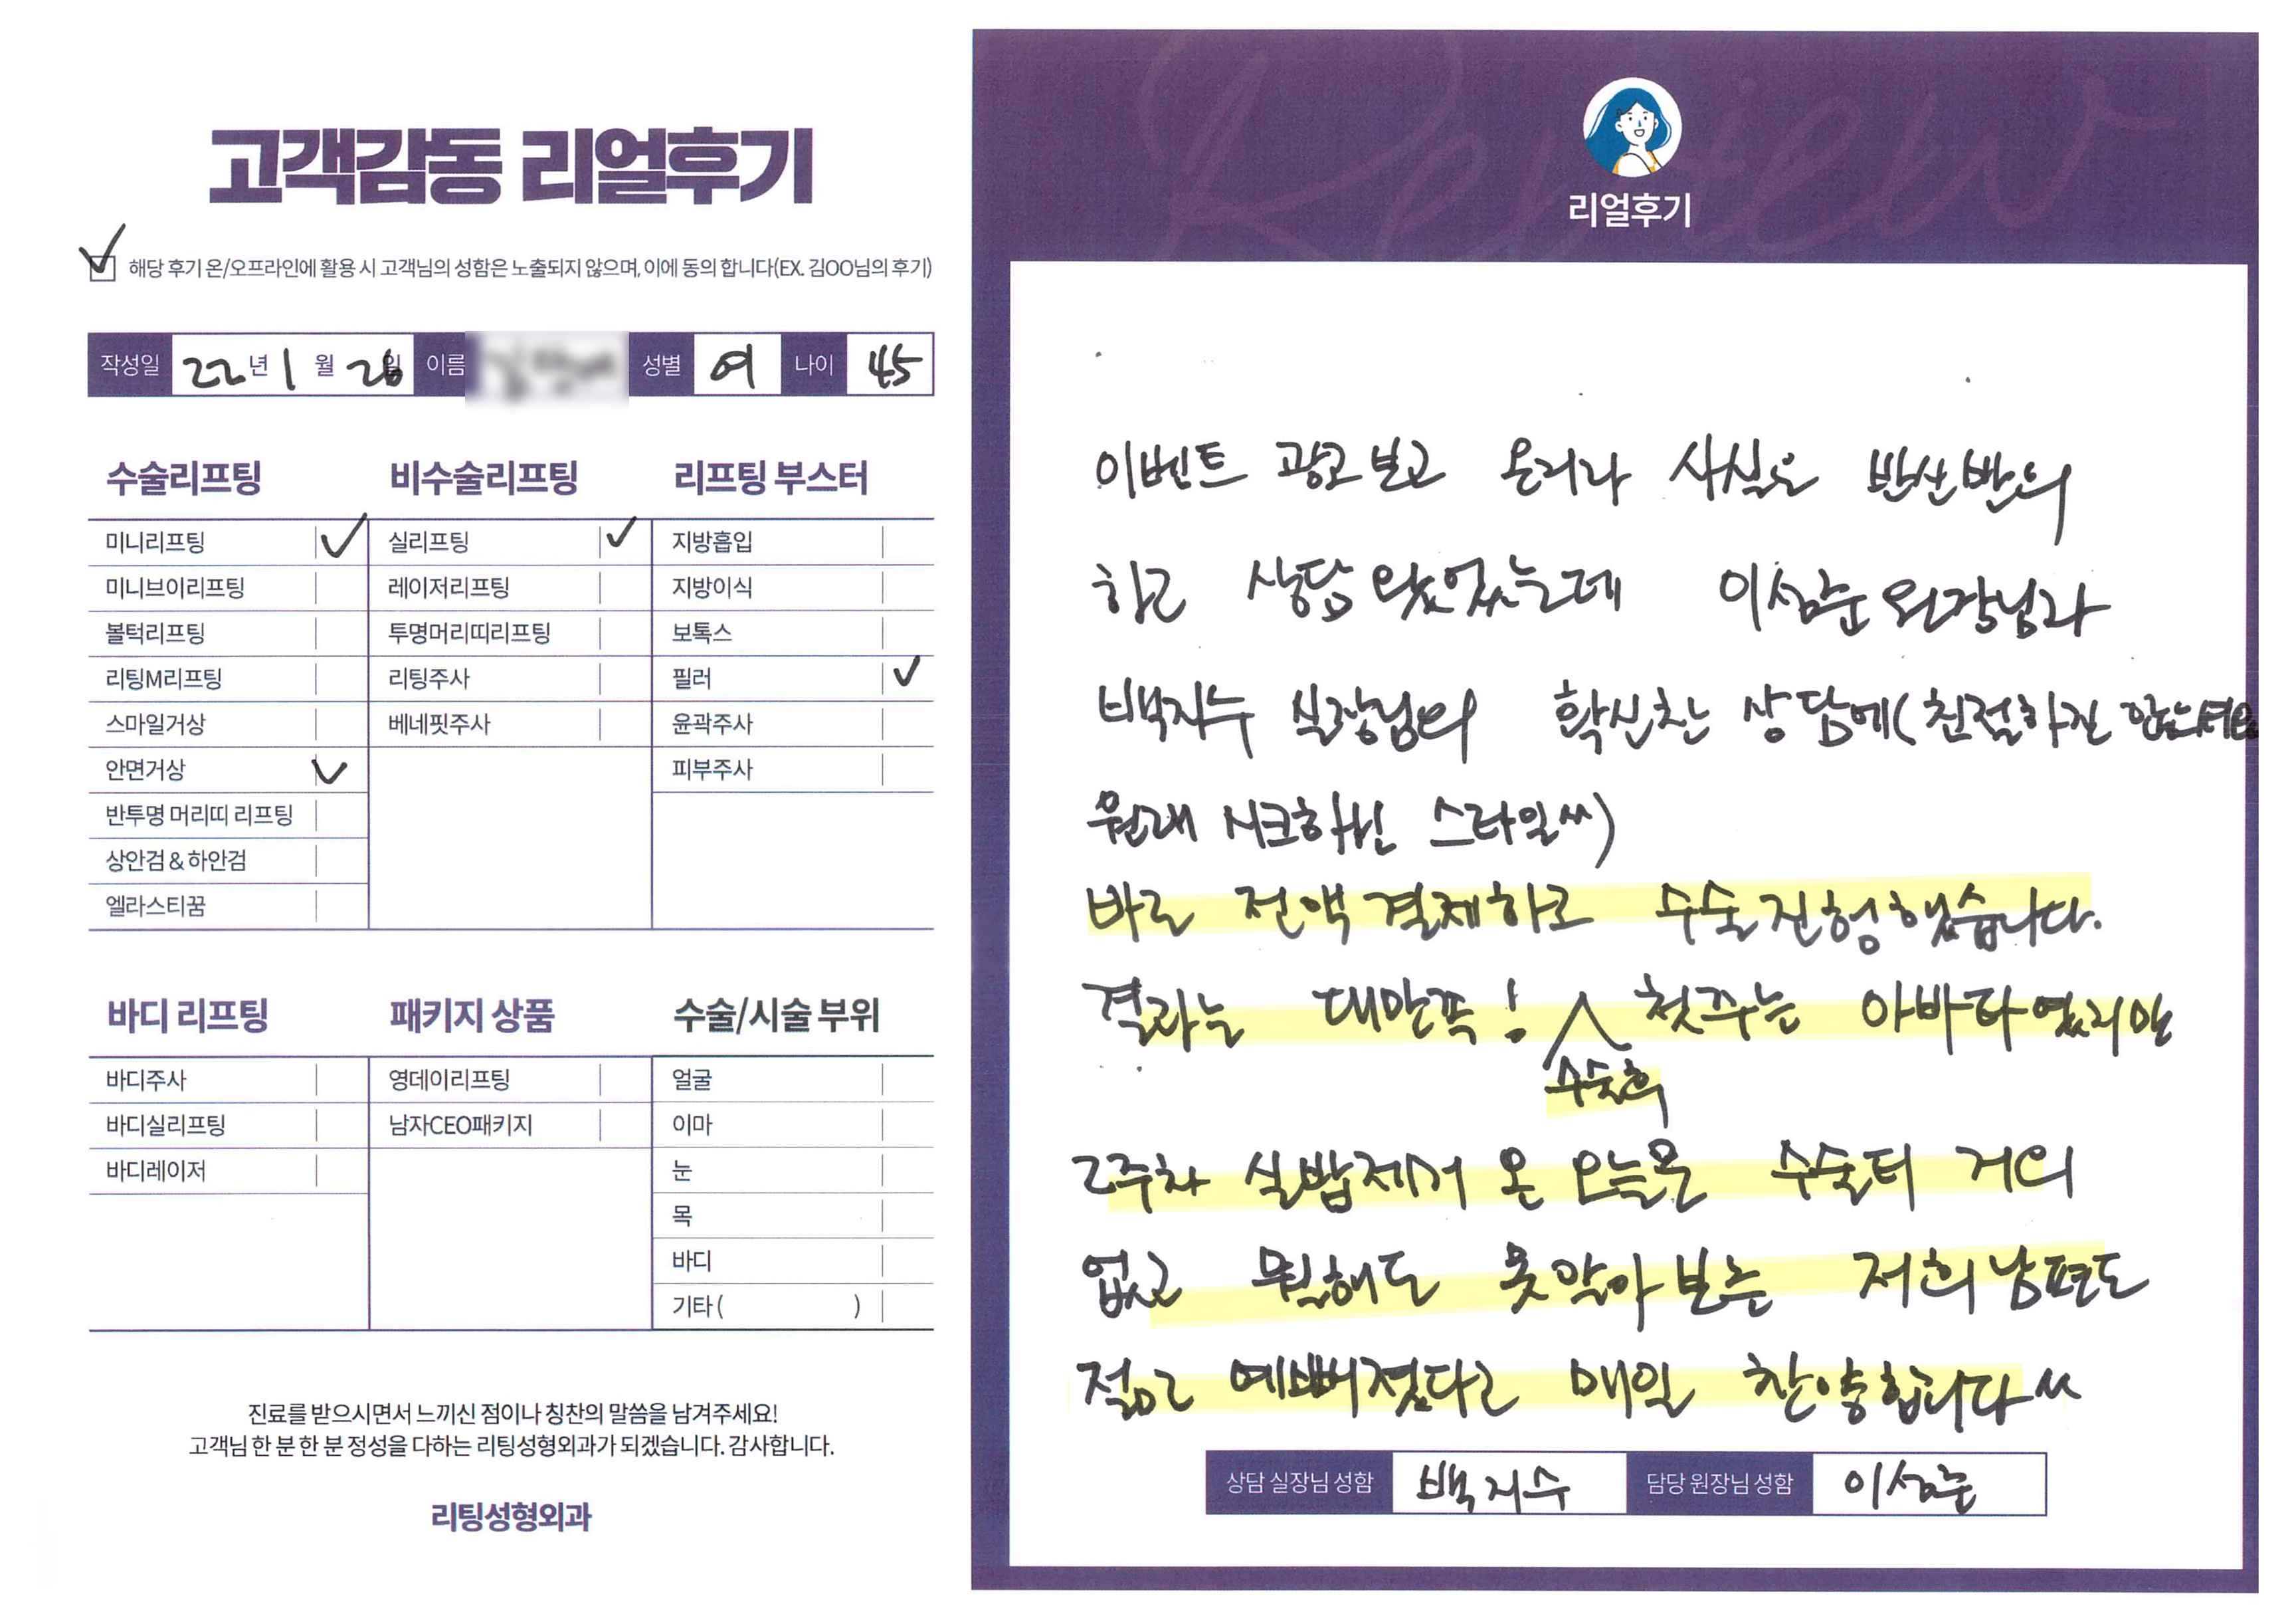 고객감동 리얼후기
해당 후기 온/오프라인에 활용 시 고객님의 성함은 노출되지 않으며, 이에 동의 합니다(EX. 김OO님의 후기)
작성일 22년 1월 26일 이름 성별 여 나이 45
수술리프팅
미니리프팅
미니브이리프팅
볼턱리프팅
리팅M리프팅
스마일거상
안면거상
반투명 머리띠 리프팅
상안검 & 하안검
엘라스티꿈
비수술리프팅
실리프팅
레이저리프팅
투명머리띠리프팅
리팅주사
베네핏주사
리프팅 부스터
지방흡입
지방이식
보톡스
필러
윤곽주사
피부주사
바디 리프팅
바디주사
바디실리프팅
바디레이저
패키지 상품
영데이리프팅
남자CEO패키지
수술/시술 부위
얼굴
이마
눈
목
바디
기타 ( )
진료를 받으시면서 느끼신 점이나 칭찬의 말씀을 남겨주세요!
고객님 한 분 한 분 정성을 다하는 리팅성형외과가 되겠습니다. 감사합니다.
리팅성형외과
Review
리얼후기
이벤트 광고보고 온거라 사실은 반신반의
하고 상담 왔었는데 이성준원장님과
백지수 실장님의 확신찬 상담에(친절하진 않으셔요
원래 시크하신 스타일ㅆ)
바로 전액결제하고 수술진행했습니다.
결과는 대만족! 첫주는 아바타였지만
수술후
2주차 실밥제거 온 오늘은 수술티 거의
없고 뭘해도 못알아보는 저희남편도
젊고 예뻐졌다고 매일 찬양합니다ㅆ
상담 실장님 성함 백지수 담당 원장님 성함 이성준